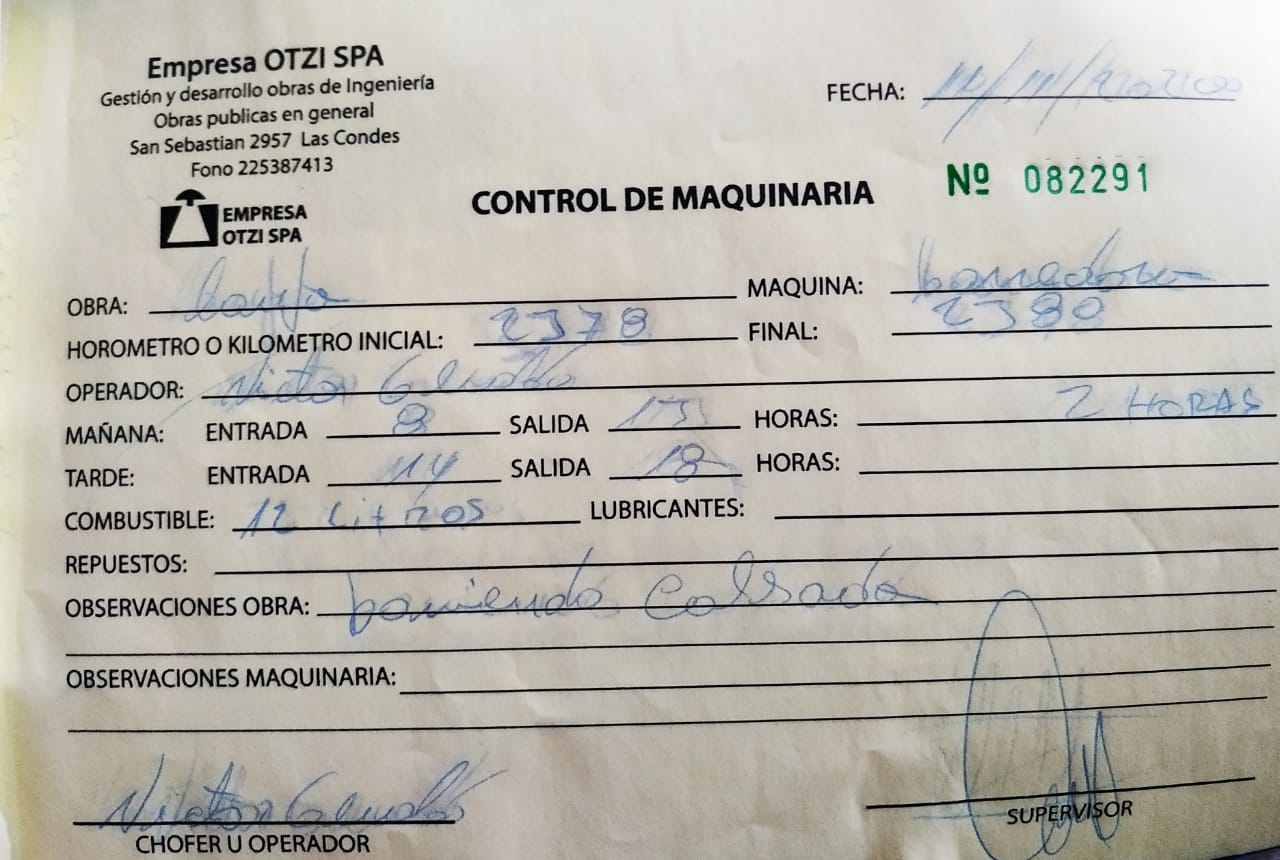 Empresa OTZI SPA
Gestión y desarrollo obras de Ingeniería
Obras publicas en general
San Sebastian 2957 Las Condes
Fono 225387413
EMPRESA
OTZI SPA
FECHA:
CONTROL DE MAQUINARIA
Nº 082291
OBRA: MAQUINA: barredora
HOROMETRO O KILOMETRO INICIAL: 2378 FINAL: 2380
OPERADOR: Victor
MAÑANA: ENTRADA 8 SALIDA 13 HORAS: 2 HORAS
TARDE: ENTRADA 14 SALIDA 18 HORAS:
COMBUSTIBLE: 12 LitROS LUBRICANTES:
REPUESTOS:
OBSERVACIONES OBRA: barriendo Calsada
OBSERVACIONES MAQUINARIA:
Victor
CHOFER U OPERADOR
SUPERVISOR